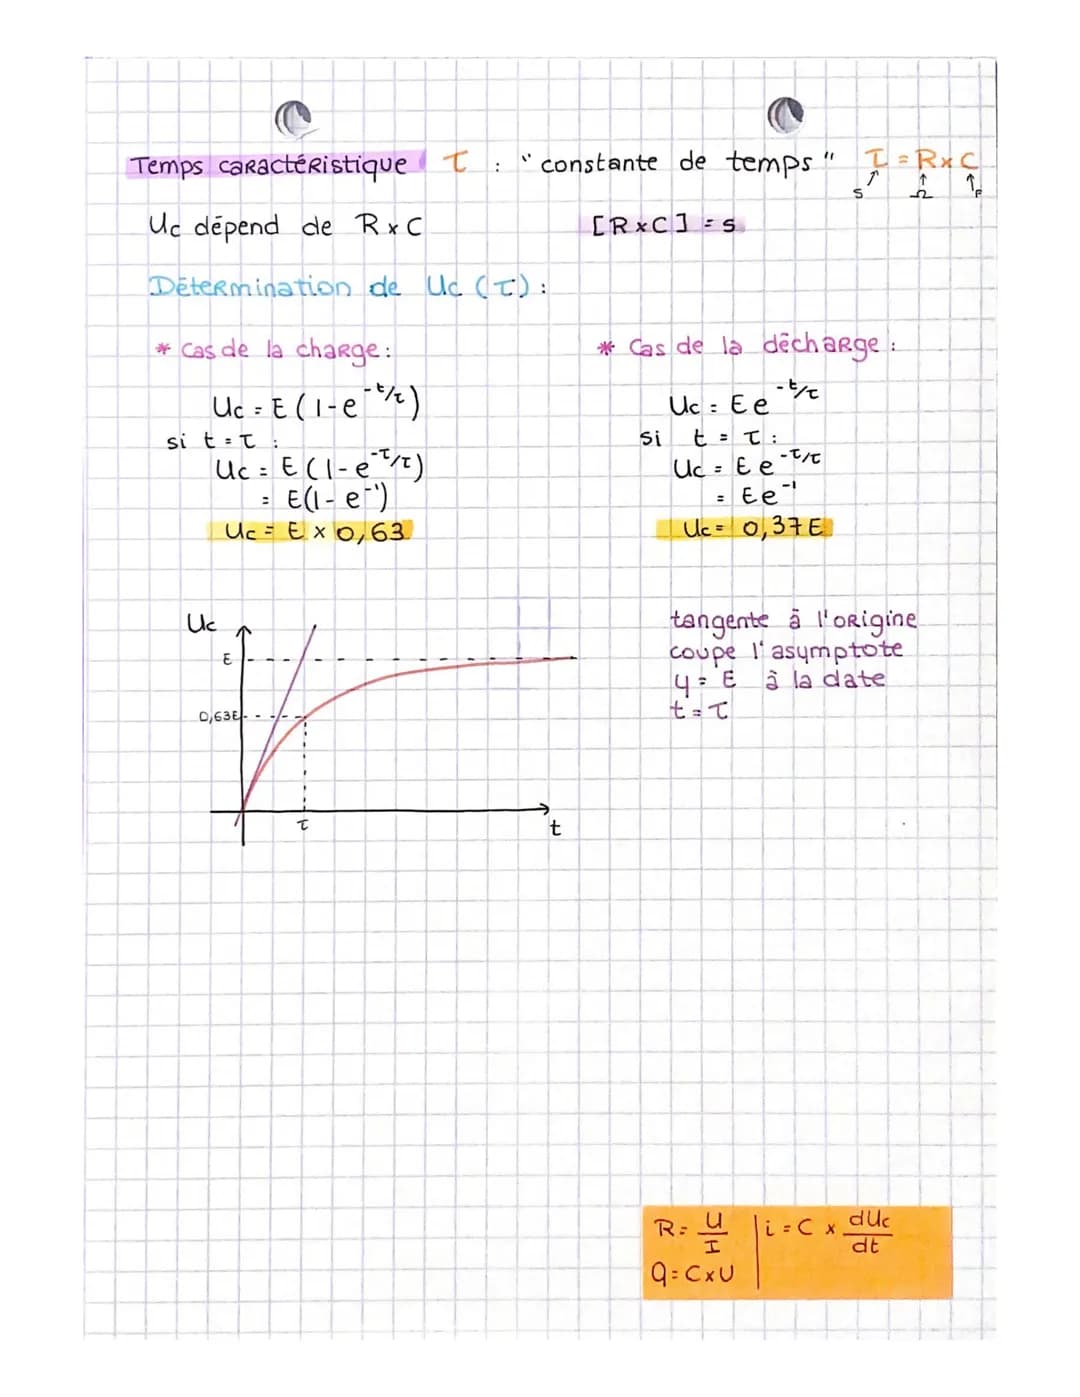 Temps caractéristique τ : "constante de temps" τ = R x C
s Ω F
Uc dépend de R x C [R x C] = s
Détermination de Uc (τ) :
* Cas de la charge :
Uc = E (1 - e^-t/τ)
si t = τ :
Uc = E (1 - e^-τ/τ)
= E(1 - e^-1)
Uc = E x 0,63
* Cas de la décharge :
Uc = E e^-t/τ
si t = τ :
Uc = E e^-τ/τ
= E e^-1
Uc = 0,37 E
Uc
E
0,63E
τ
t
tangente à l'origine
coupe l'asymptote
y = E à la date
t = τ
R = U/I | i = C x dUc/dt
Q = C x U